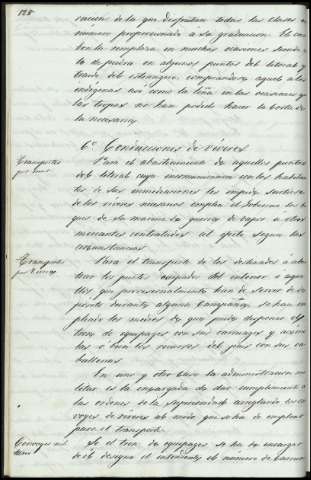 128
ración de la que disfrutan todas las clases
número proporcionado á su graduacion. El car
bon la remplaza en muchas ocasiones siendo
la de piedra en algunos puntos del litoral y
traido del estrangero, comprandose aquel á los
indigenas así como la leña en las ocasiones que
las tropas no han podido hacer la corta de
la necesaria.
6º Conducciones de víveres
Transportes
por mar
Para el abastecimiento de aquellos puntos
del litoral cuya incomunicacion con los habitan
tes de sus inmediaciones les impida surtirse
de los víveres necesarios emplea el Gobierno los bu
ques de su marina de guerra de vapor ú otros
mercantes contratados al efecto segun las
circunstancias.
Transportes
por tierra
Para el transporte de los destinados á abas
tecer los puntos ocupados del interior ó aque
llos que provisionalmente han de servir de de
pósito durante alguna campaña, se han em
pleado los medios de que puede disponer el
tren de equipages con sus carruages y acémi
las ó bien los recursos del pais con sus ca
ballerias.
En uno y otro caso la administracion mi
litar es la encargada de dar cumplimiento á
las ordenes de la superioridad arreglando los con
voyes de víveres al medio que se ha de emplear
para el transporte.
Si el tren de equipages se ha de encargar
de él designa el intendente el número de carros